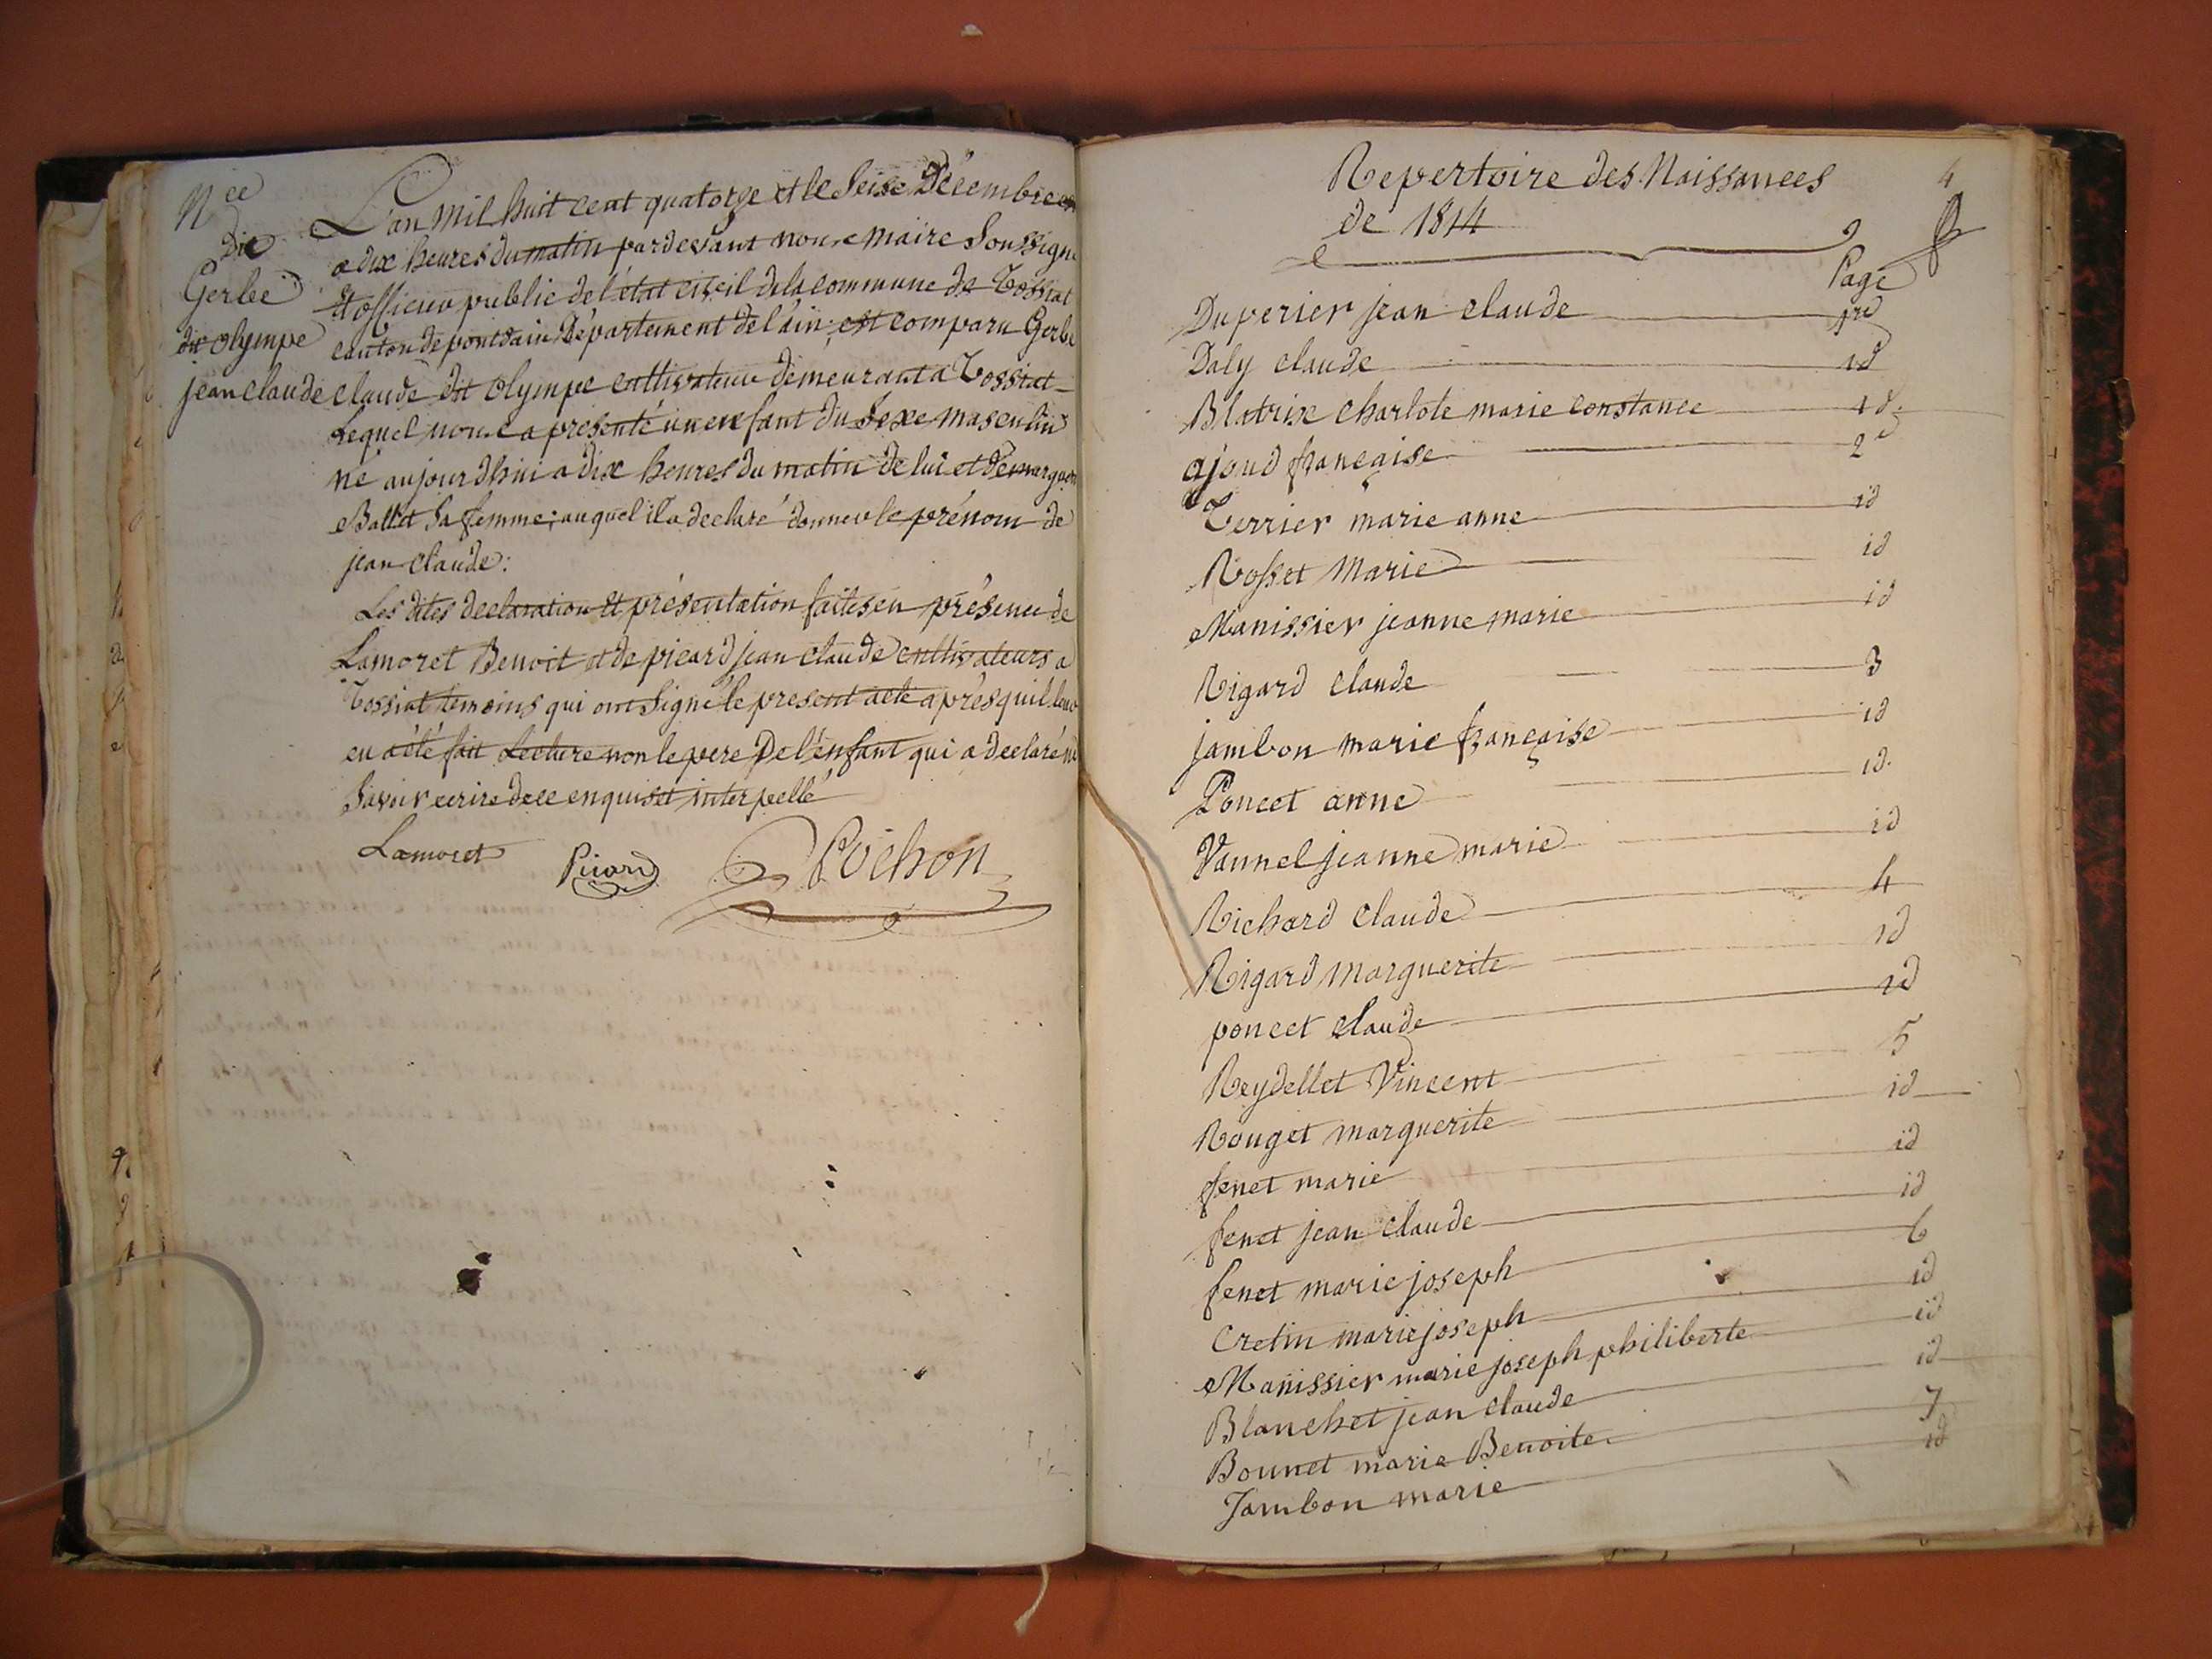 Nce
die
Gerbe
dit olympe
jean claude
L'an mil huit cent quatorze et le Seise Décembre
a dix heures du matin pardevant nous maire Soussigné
et officier public de l'état civil de la commune de Tossiat
canton de pontdain Département de l'ain; est comparu Gerbe
claude dit olympe cultivateur demeurant a Tossiat
Lequel nous a présenté un enfant du Sexe masculin
né aujourdhui a dix heures du matin de lui et de
Ballet Sa femme; auquel il a declaré donner le prénom de
jean claude:
Les dites declaration et présentation faites en présence de
Lamoret Benoit et de picard jean claude cultivateurs a
Tossiat temoins qui ont Signé le present acte après quil leur
en a été fait Lecture non le pere de l'enfant qui a declaré ne
Savoir ecrire de ce enquis et interpellé
Lamoret Picard Pochon
4
Repertoire des Naissances
de 1814
Page
Duperier jean claude 1re
Daly claude id
Blatrix charlote marie constance id
ajoud française 2e
Terrier marie anne id
Rosset Marie id
Manissier jeanne marie id
Rigard claude 3
jambon marie française id
Poncet anne id.
Vannel jeanne marie id
Richard claude 4
Rigard marguerite id
poncet claude id
Reydellet Vincent 5
Rouget marguerite id
fenet marie id
fenet jean claude id
fenet marie joseph 6
Cretin marie joseph id
Manissier marie joseph philiberte id
Blanchet jean claude id
Bounet marie Benoite 7
Jambon marie id